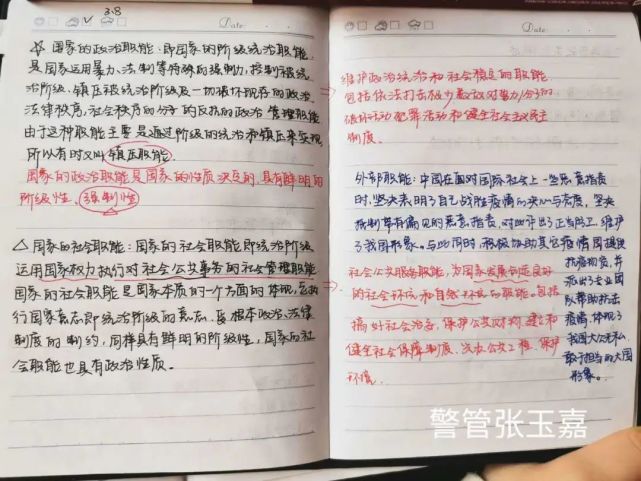 3.8
Date
☆ 国家的政治职能：即国家的阶级统治职能，
是国家运用暴力、法制等特殊的强制力，控制被统
治阶级，镇压被统治阶级及一切破坏现存的政治、
法律秩序，社会秩序的分子的反抗的政治管理职能
由于这种职能主要是通过阶级的统治和镇压来实现
所以有时又叫镇压职能
国家的政治职能是国家的性质决定的，具有鲜明的
阶级性、强制性
△ 国家的社会职能：国家的社会职能即统治阶级
运用国家权力执行对社会公共事务的社会管理职能
国家的社会职能是国家本质的一个方面的体现，它执
行国家意志即统治阶级的意志，受根本政治、法律
制度的制约，同样具有鲜明的阶级性，国家的社
会职能也具有政治性质。
Date
维护政治统治和社会稳定的职能
包括依法打击极少数敌对势力/分子的
破坏活动犯罪活动和健全社会主义民主
制度。
外部职能：中国在面对国际社会上一些恶意指责
时，坚决表明了自己战胜疫情的决心与态度，坚决
抵制带有偏见的恶意指责，对此作出了正当防卫，维护
了我国形象。与此同时，积极协助其它疫情国提供
抗疫物资，并
派出了专业团
队帮助抗击
疫情，体现了
我国大公无私、
敢于担当的大国
形象。
社会公共服务职能，为国家发展创造良好
的社会环境和自然环境的职能，包括
搞好社会治安、保护公共财物、建立和
健全社会保障制度、兴办公共工程、保护
环境
警管张玉嘉